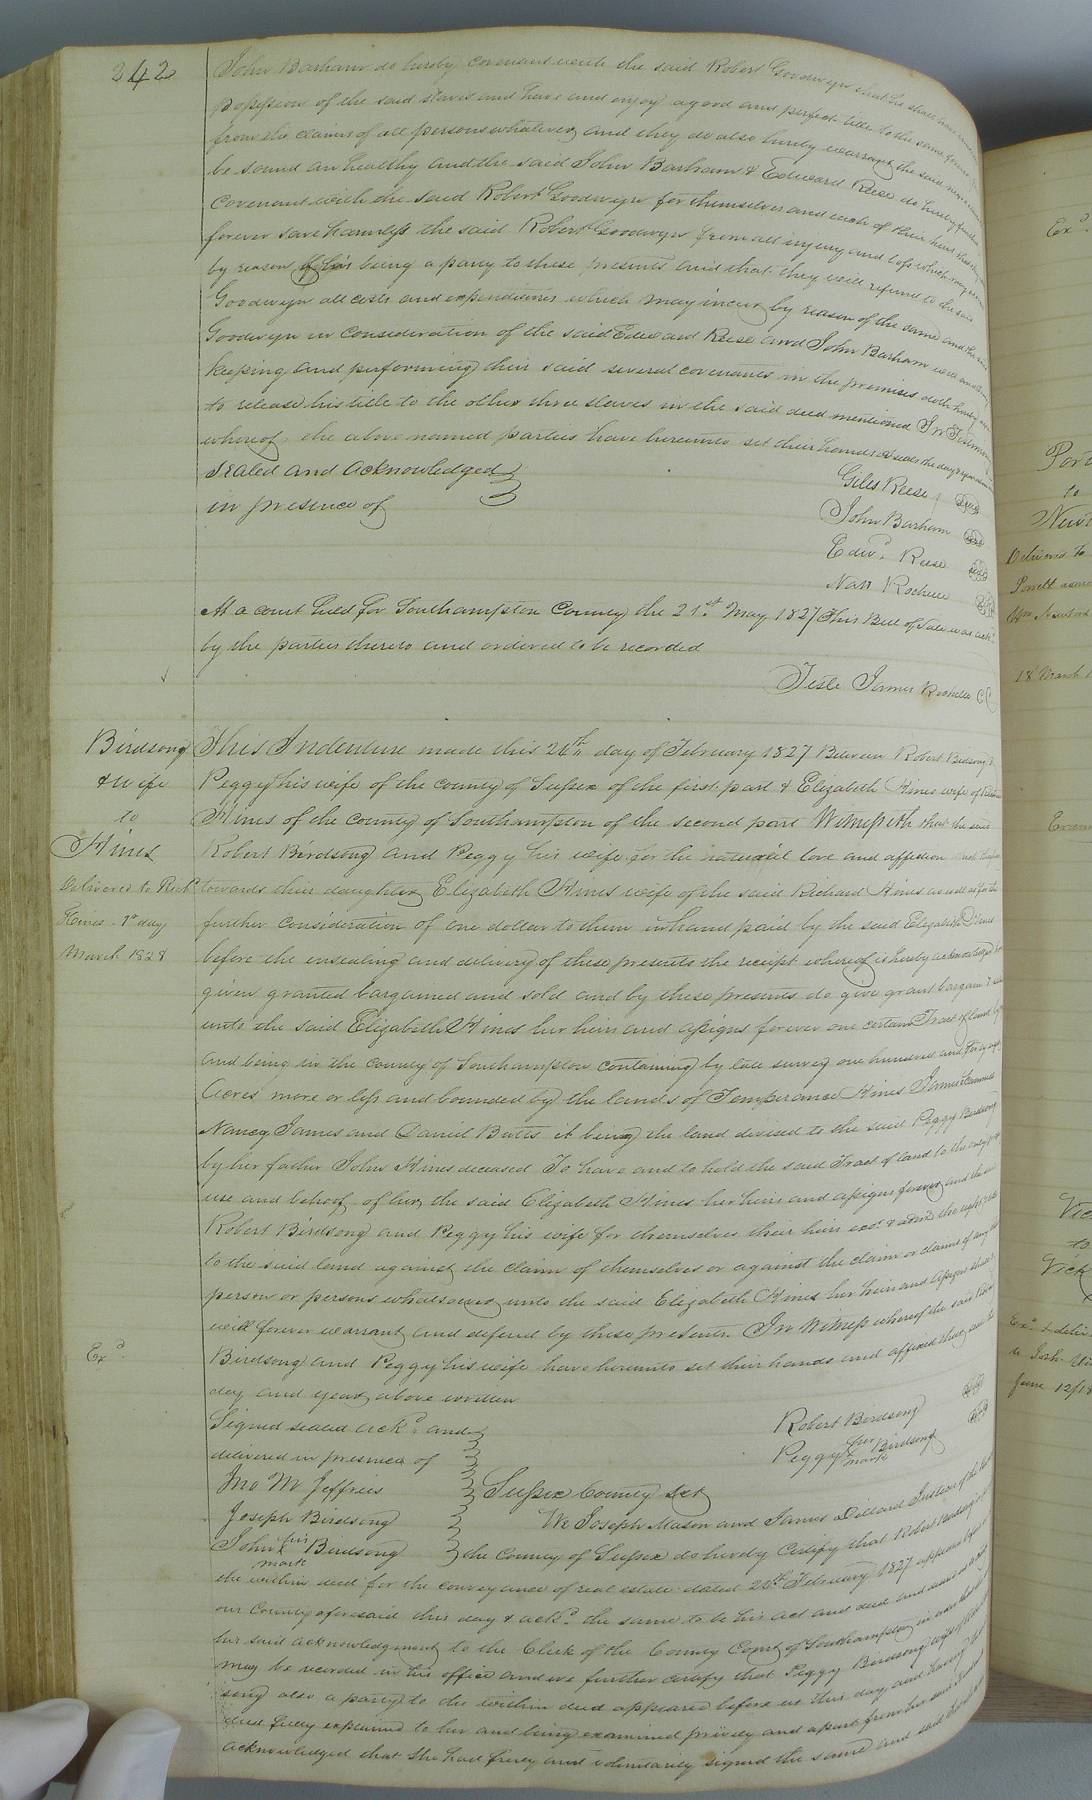 242
John Barham do hereby covenant with the said Robert Goodwyn that he shall have
possession of the said slaves and have and enjoy a good and perfect title to the same
from the claims of all persons whatever and they do also hereby warrant the said
be sound an healthy and the said John Barham & Edward Reese do hereby further
covenant with the said Robert Goodwyn for themselves and each of their heirs that they
forever save harmless the said Robert Goodwyn from all injury and loss which may
by reason of his being a party to these presents and that they will refund to the said
Goodwyn all costs and expenditures which may incur by reason of the same and the said
Goodwyn in consideration of the said Edward Reese and John Barham well and
keeping and performing their said several covenants in the premises doth hereby
to release his title to the other three slaves in the said deed mentioned In Testimony
whereof the above named parties have hereunto set their hands & seals the day & year
Sealed and acknowledged
in presence of
Giles Reese seal
John Barham seal
Edwd. Reese seal
Natl Rochelle seal
At a court held for Southampton County the 21st May 1827 This Bill of Sale was ackd
by the parties thereto and ordered to be recorded
Teste James Rochelle CC
Birdsong
& wife
to
Hines
Delivered to Richd
Hines 1st day
March 1828
This Indenture made this 26th day of February 1827 Between Robert Birdsong &
Peggy his wife of the county of Sussex of the first part & Elizabeth Hines wife of Richard
Hines of the county of Southampton of the second part Witnesseth that the said
Robert Birdsong and Peggy his wife for the natural love and affection
towards their daughter Elizabeth Hines wife of the said Richard Hines as well as for the
further consideration of one dollar to them in hand paid by the said Elizabeth Hines
before the ensealing and delivery of these presents the receipt whereof is hereby acknowledged
given granted bargained and sold and by these presents do give grant bargain & sell
unto the said Elizabeth Hines her heirs and assigns forever one certain Tract of land
and being in the county of Southampton containing by late survey one hundred and
acres more or less and bounded by the lands of Temperance Hines James
Nancy James and David Butts it being the land devised to the said Peggy Birdsong
by her father John Hines deceased To have and to hold the said Tract of land to the only
use and behoof of her the said Elizabeth Hines her heirs and assigns forever and the said
Robert Birdsong and Peggy his wife for themselves their heirs exors & admrs the right
to the said land against the claim of themselves or against the claim or claims of any
person or persons whatsoever unto the said Elizabeth Hines her heirs and assigns
will forever warrant and defend by these presents. In Witness whereof the said Robert
Birdsong and Peggy his wife have hereunto set their hands and affixed their seals the
day and year above written
Exd.
Signed sealed ackd. and
delivered in presence of
Jno M Jeffries
Joseph Birdsong
John his Birdsong
mark
Robert Birdsong seal
Peggy her Birdsong seal
mark
Sussex County Sct
We Joseph Mason and James Dillard Justices of the
the County of Sussex do hereby Certify that Robert Birdsong
the within deed for the conveyance of real estate dated 26th February 1827 appeared
our County aforesaid this day & ackd. the same to be his act and deed and
his said acknowledgment to the Clerk of the County Court of Southampton in order
may be recorded in his office and we further certify that Peggy Birdsong wife of
song also a party to the within deed appeared before us this day and having
deed fully explained to her and being examined privily and apart from her said husband
acknowledged that she had freely and voluntarily signed the same and said
Exd.
to
Delivered to
18 March
to
Vick
Exd. & deliv
June 12/18